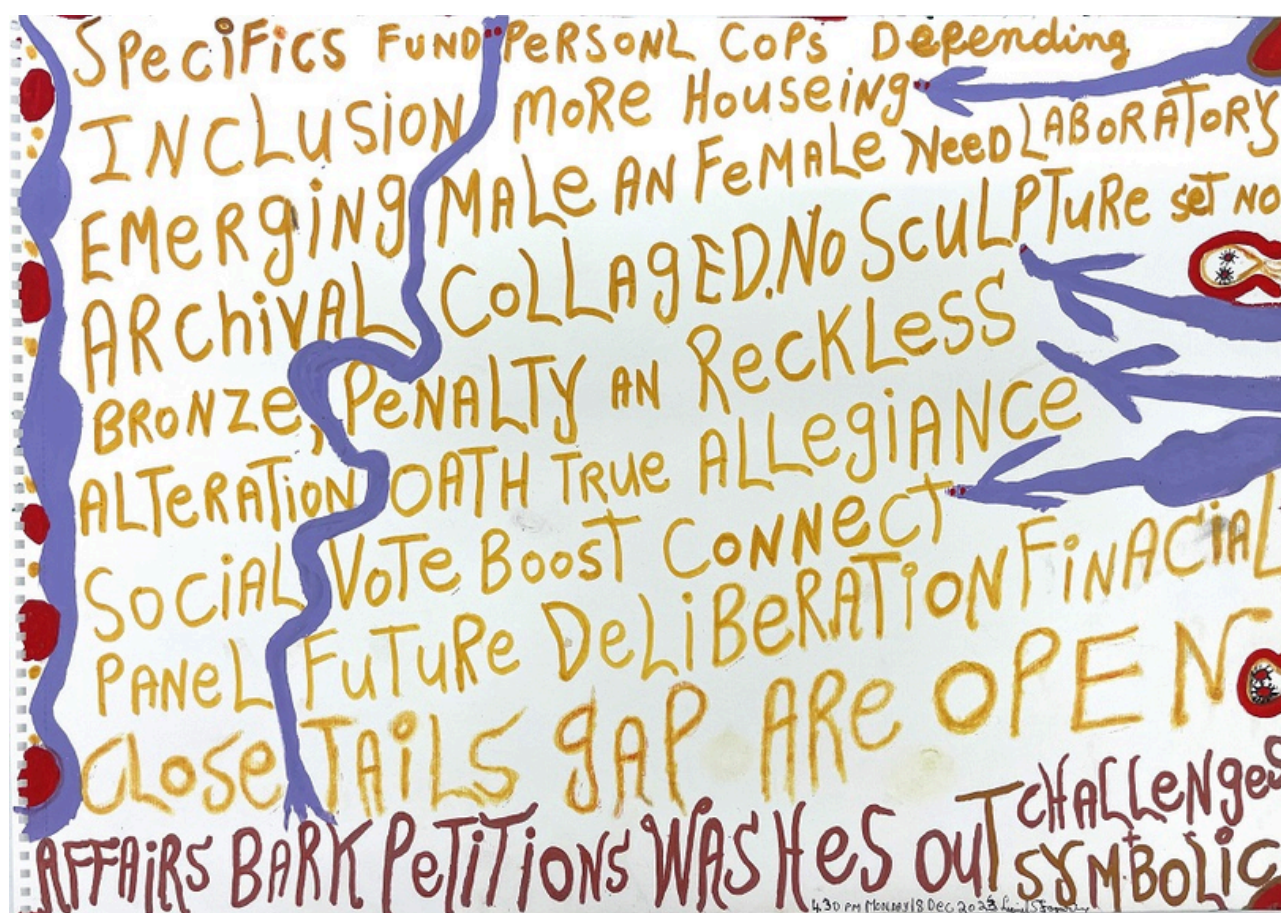 SPeCiFiCS FUND PeRSONL CoPs Depending
INCLUSiON MoRe HouseiNg
EMeRgiNg MALe AN FeMALe NeeD LABoRAToRY
ARChiVAL CoLLAgED.No SCuLPTuRe seT No
BRoNZe, PeNALTY AN ReCKLeSS
ALTeRATioN OATH TRue ALLegiANCe
SoCiAL VoTe BooST CoNNeCT
PANeL FuTuRe DeLiBeRATioN FiNACiAL
CLoSe TAiLS gAP ARe OPEN
CHALLeNgeS
AFFAiRS BARK PeTiTioNS WASHeS OuT SYMBOLiC
4.30 PM MONDAY 18 Dec 2023